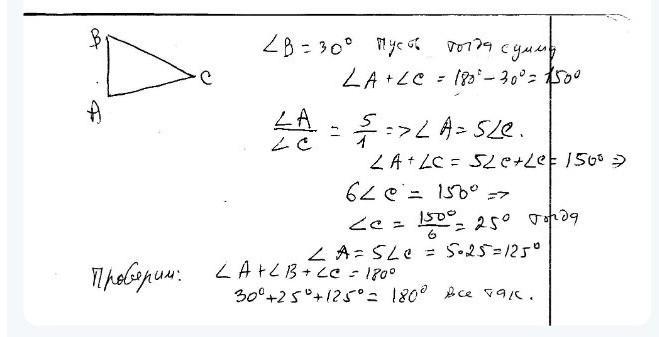 B
C
A
∠B = 30° Пусть тогда сумма
∠A + ∠C = 180° - 30° = 150°
∠A/∠C = 5/1 => ∠A = 5∠C.
∠A + ∠C = 5∠C + ∠C = 150° =>
6∠C = 150° =>
∠C = 150°/6 = 25° тогда
∠A = 5∠C = 5·25 = 125°
Проверим: ∠A + ∠B + ∠C = 180°
30° + 25° + 125° = 180° все так.